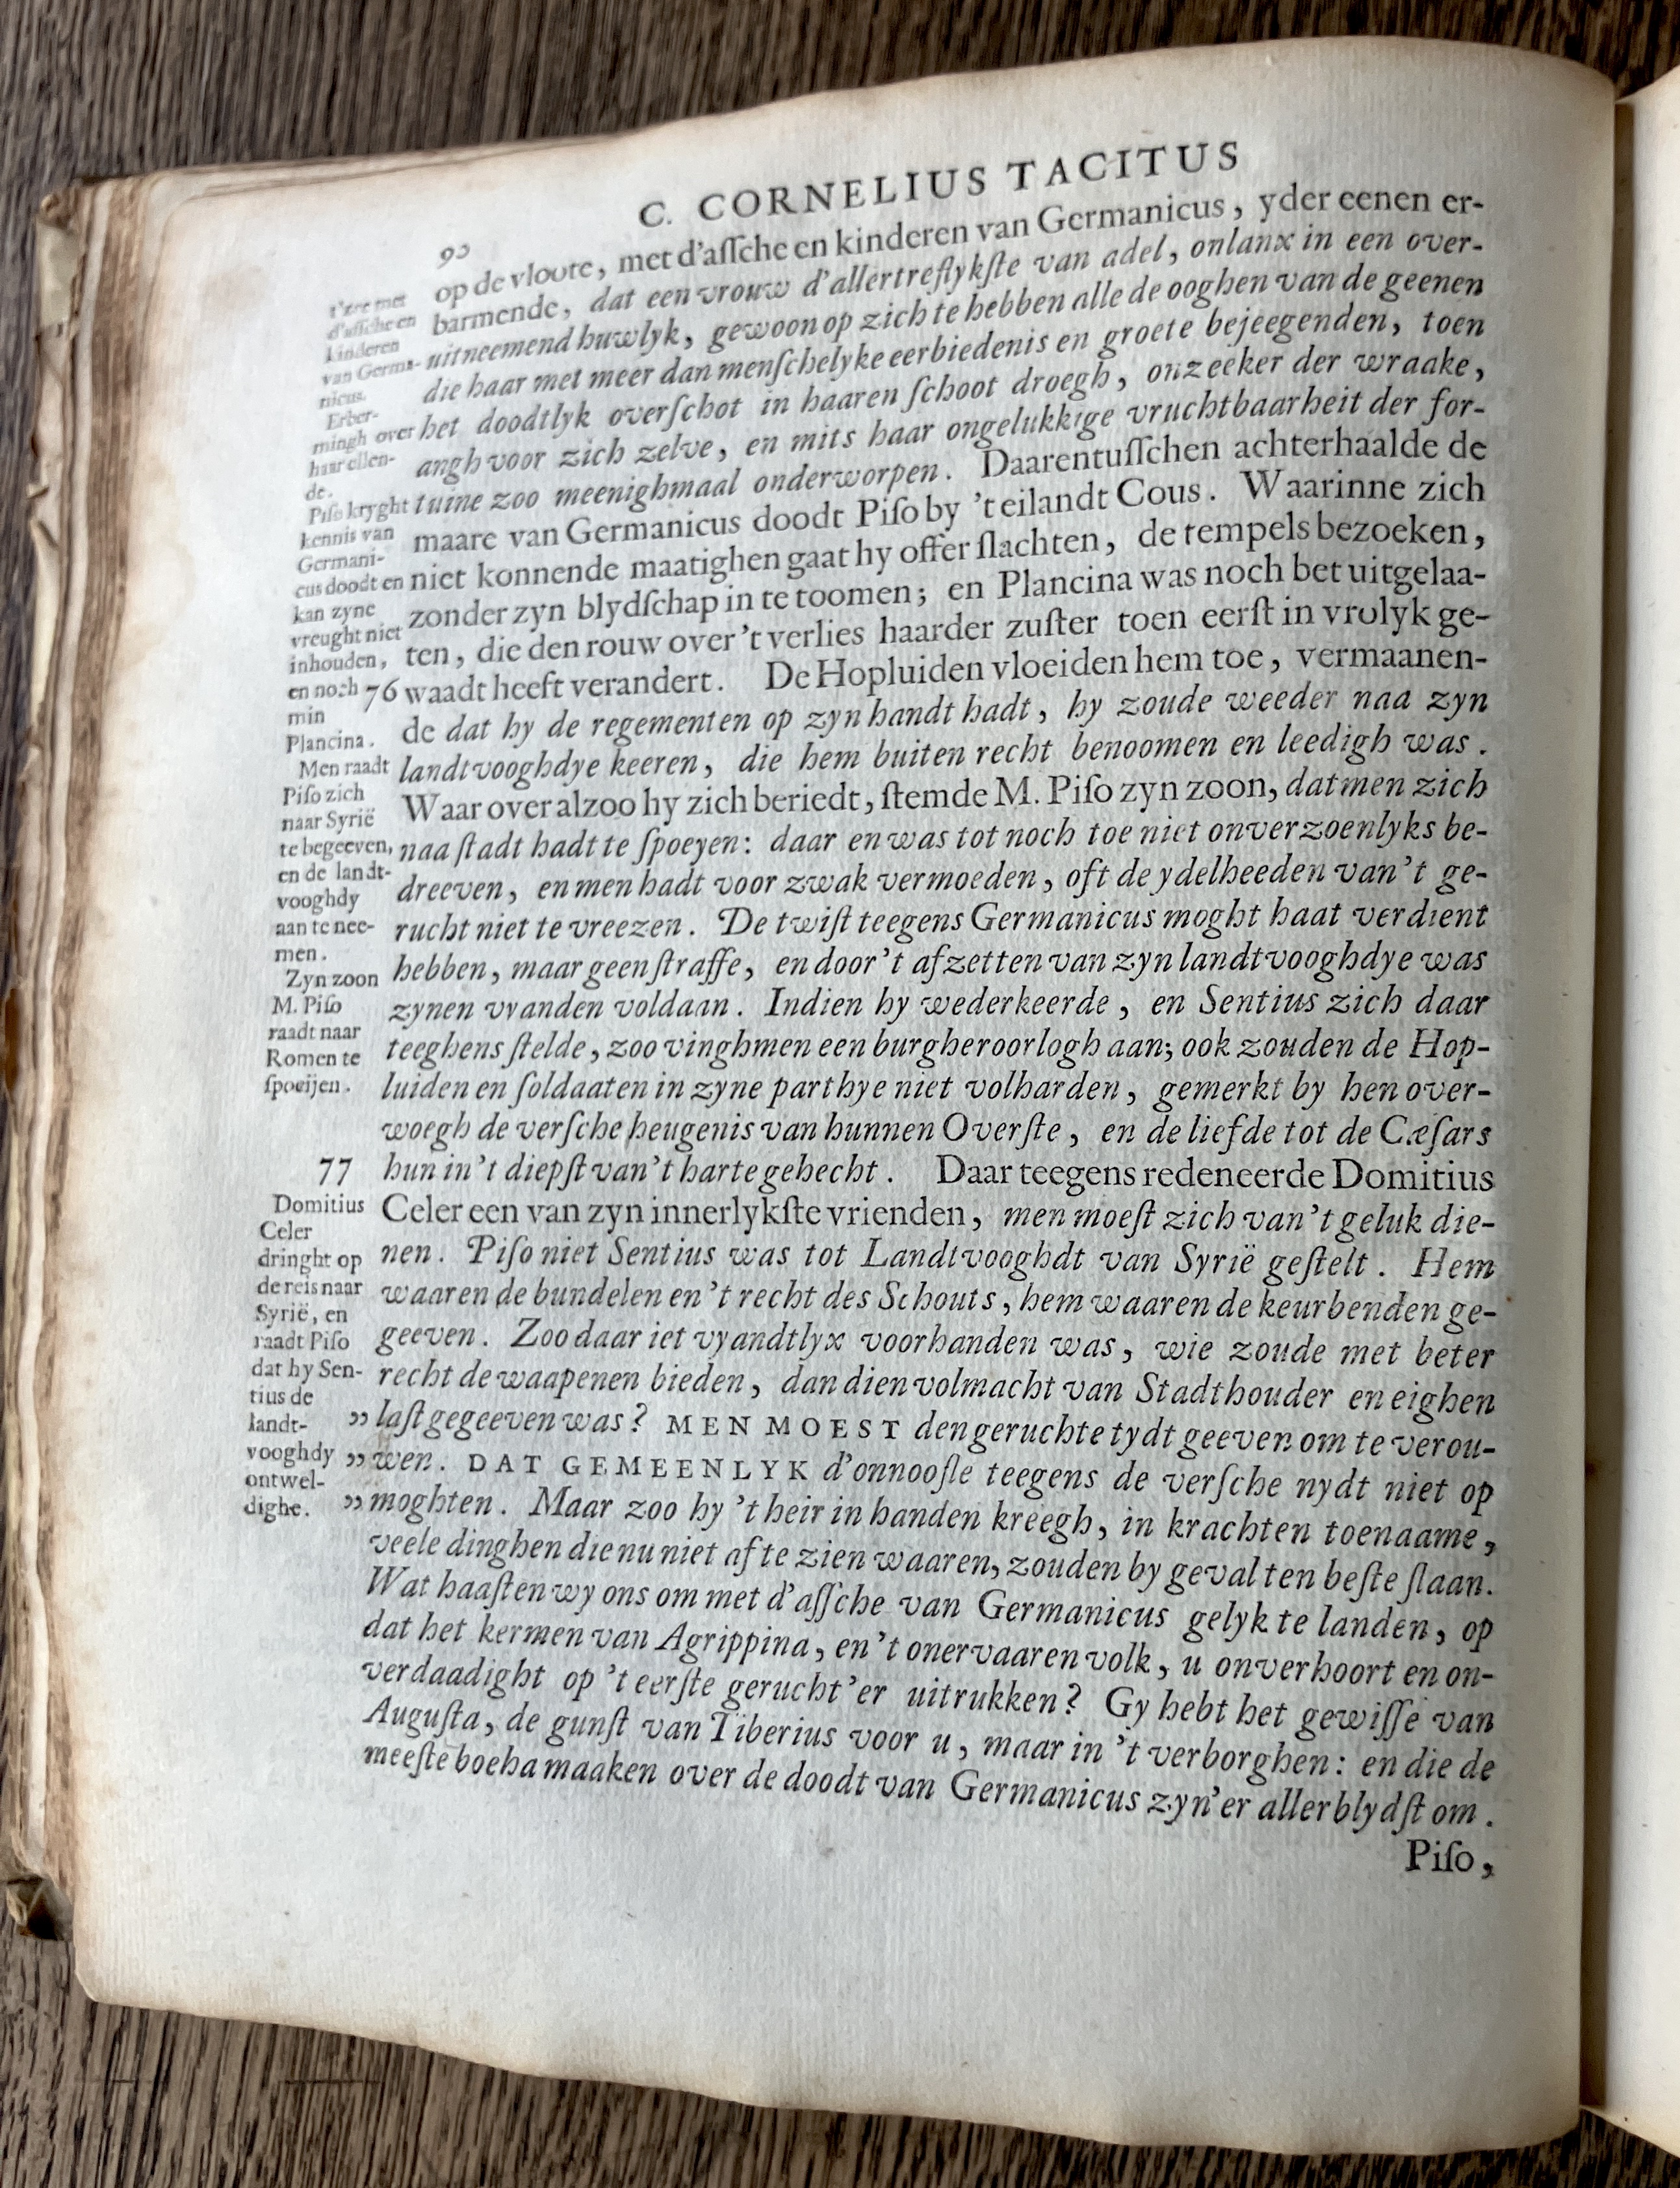 90
C. CORNELIUS TACITUS
op de vloote, met d'aſſche en kinderen van Germanicus, yder eenen er-
barmende, dat een vrouw d'allertreflykſte van adel, onlanx in een over-
uitneemend huwlyk, gewoon op zich te hebben alle de ooghen van de geenen
die haar met meer dan menſchelyke eerbiedenis en groete bejeegenden, toen
het doodtlyk overſchot in haaren ſchoot droegh, onzeeker der wraake,
angh voor zich zelve, en mits haar ongelukkige vruchtbaarheit der for-
tuine zoo meenighmaal onderworpen. Daarentuſſchen achterhaalde de
maare van Germanicus doodt Piſo by 't eilandt Cous. Waarinne zich
niet konnende maatighen gaat hy offer ſlachten, de tempels bezoeken,
zonder zyn blydſchap in te toomen; en Plancina was noch bet uitgelaa-
ten, die den rouw over 't verlies haarder zuſter toen eerſt in vrolyk ge-
76 waadt heeft verandert. De Hopluiden vloeiden hem toe, vermaanen-
de dat hy de regementen op zyn handt hadt, hy zoude weeder naa zyn
landtvooghdye keeren, die hem buiten recht benoomen en leedigh was.
Waar over alzoo hy zich beriedt, ſtemde M. Piſo zyn zoon, datmen zich
naa ſtadt hadt te ſpoeyen: daar en was tot noch toe niet onverzoenlyks be-
dreeven, en men hadt voor zwak vermoeden, oft de ydelheeden van 't ge-
rucht niet te vreezen. De twiſt teegens Germanicus moght haat verdient
hebben, maar geen ſtraffe, en door 't afzetten van zyn landtvooghdye was
zynen vyanden voldaan. Indien hy wederkeerde, en Sentius zich daar
teeghens ſtelde, zoo vinghmen een burgheroorlogh aan; ook zouden de Hop-
luiden en ſoldaaten in zyne parthye niet volharden, gemerkt by hen over-
woegh de verſche heugenis van hunnen Overſte, en de liefde tot de Cæſars
77 hun in 't diepſt van 't harte gehecht. Daar teegens redeneerde Domitius
Celer een van zyn innerlykſte vrienden, men moeſt zich van 't geluk die-
nen. Piſo niet Sentius was tot Landtvooghdt van Syrië geſtelt. Hem
waaren de bundelen en 't recht des Schouts, hem waaren de keurbenden ge-
geeven. Zoo daar iet vyandtlyx voorhanden was, wie zoude met beter
recht de waapenen bieden, dan dien volmacht van Stadthouder en eighen
„ laſt gegeeven was? MEN MOEST den geruchte tydt geeven om te verou-
„ wen. DAT GEMEENLYK d'onnooſle teegens de verſche nydt niet op
„ moghten. Maar zoo hy 't heir in handen kreegh, in krachten toenaame,
veele dinghen die nu niet af te zien waaren, zouden by geval ten beſte ſlaan.
Wat haaſten wy ons om met d'aſſche van Germanicus gelyk te landen, op
dat het kermen van Agrippina, en 't onervaaren volk, u onverhoort en on-
verdaadight op 't eerſte gerucht 'er uitrukken? Gy hebt het gewiſſe van
Auguſta, de gunſt van Tiberius voor u, maar in 't verborghen: en die de
meeſte boeha maaken over de doodt van Germanicus zyn'er allerblydſt om.
Piſo,
t'zee met
d'aſſche en
kinderen
van Germa-
nicus.
Erber-
mingh over
haar ellen-
de.
Piſo kryght
kennis van
Germani-
cus doodt en
kan zyne
vreught niet
inhouden,
en noch
min
Plancina.
Men raadt
Piſo zich
naar Syrië
te begeeven,
en de landt-
vooghdy
aan te nee-
men.
Zyn zoon
M. Piſo
raadt naar
Romen te
ſpoeijen.
Domitius
Celer
dringht op
de reis naar
Syrië, en
raadt Piſo
dat hy Sen-
tius de
landt-
vooghdy
ontwel-
dighe.